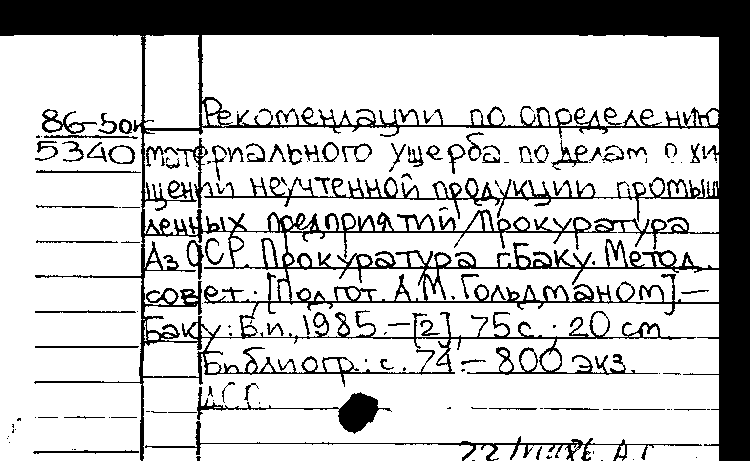 86-5ок Рекомендации по определению
5340 материального ущерба по делам о хи
щении неучтенной продукции промыш
ленных предприятий / Прокуратура
Аз ССР. Прокуратура г. Баку. Метод.
совет; [Подгот. А.М. Гольдманом].—
Баку: Б.и., 1985.—[2], 75 с.; 20 см
Библиогр.: с. 74.— 800 экз.